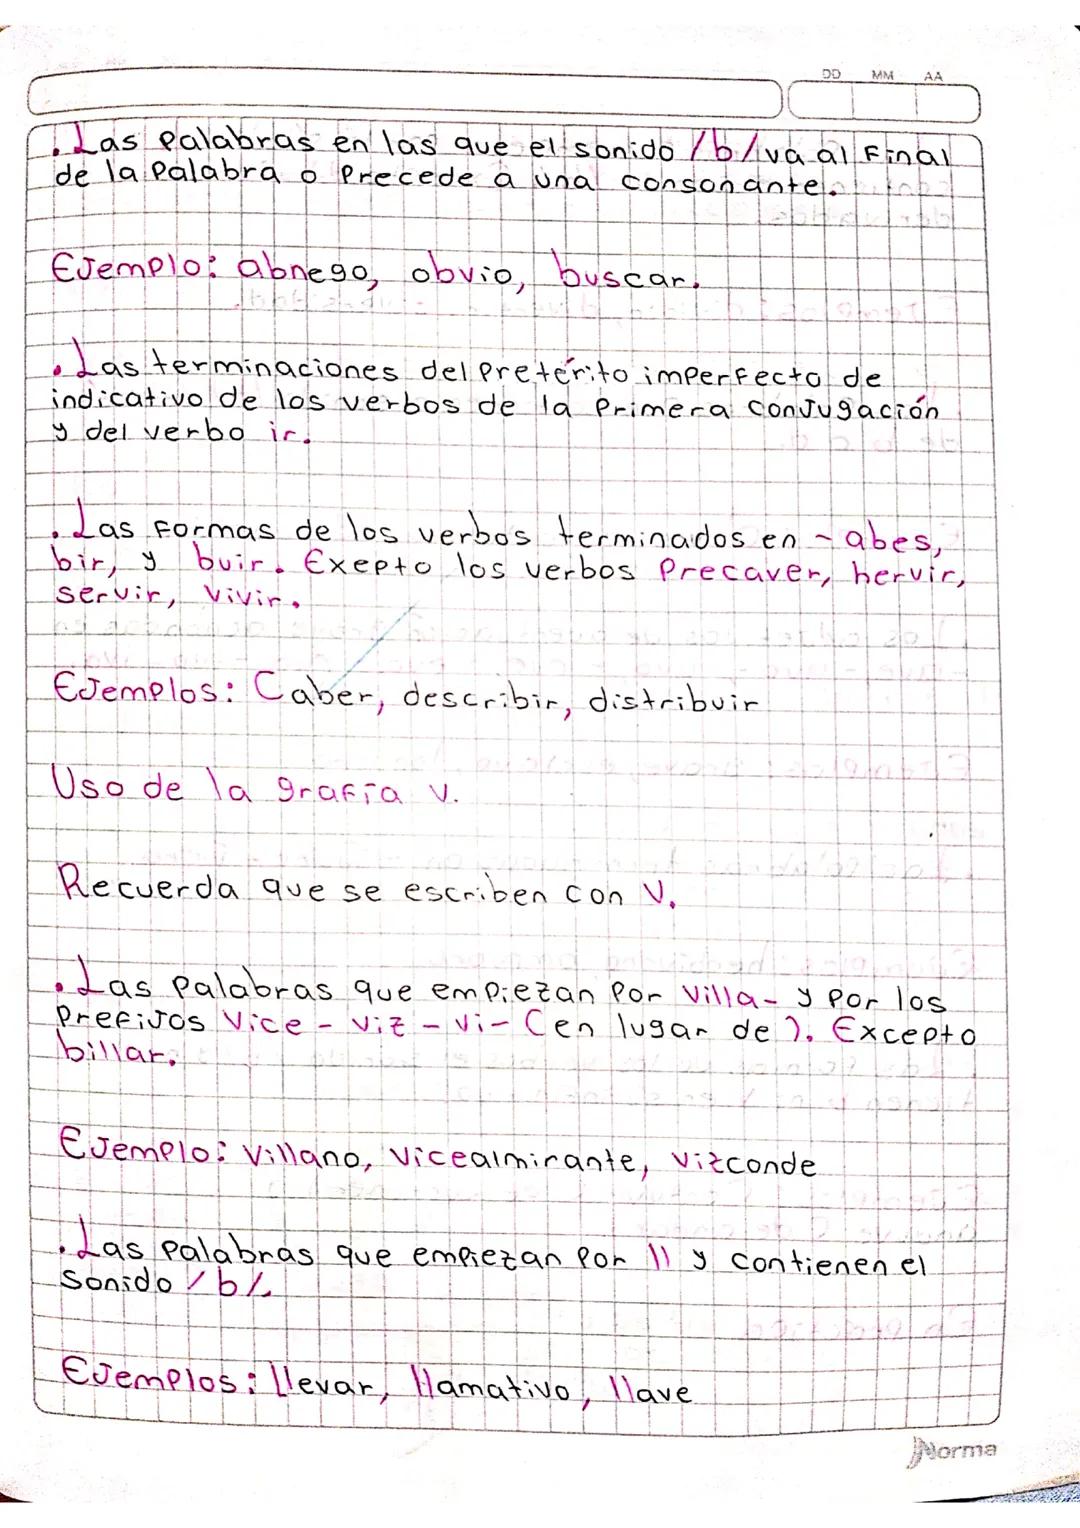 DD MM AA
. Las palabras en las que el sonido /b/ va al Final
de la Palabra o Precede a una consonante.
EJemplo: abnego, obvio, buscar.
. Las terminaciones del Pretérito imperfecto de
indicativo de los verbos de la Primera conJugación
y del verbo ir.
. Las Formas de los verbos terminados en - abes,
bir, y buir. Exepto los verbos Precaver, hervir,
servir, vivir.
EJemplos: Caber, describir, distribuir
Uso de la grafía v.
Recuerda que se escriben con V.
. Las Palabras que empiezan Por Villa- y Por los
PrefiJos Vice - viz - vi- (en lugar de ). Excepto
billar.
EJemplo: Villano, Vicealmirante, vizconde
. Las palabras que empiezan Por ll y contienen el
sonido /b/.
EJemplos: llevar, llamativo, llave
Norma